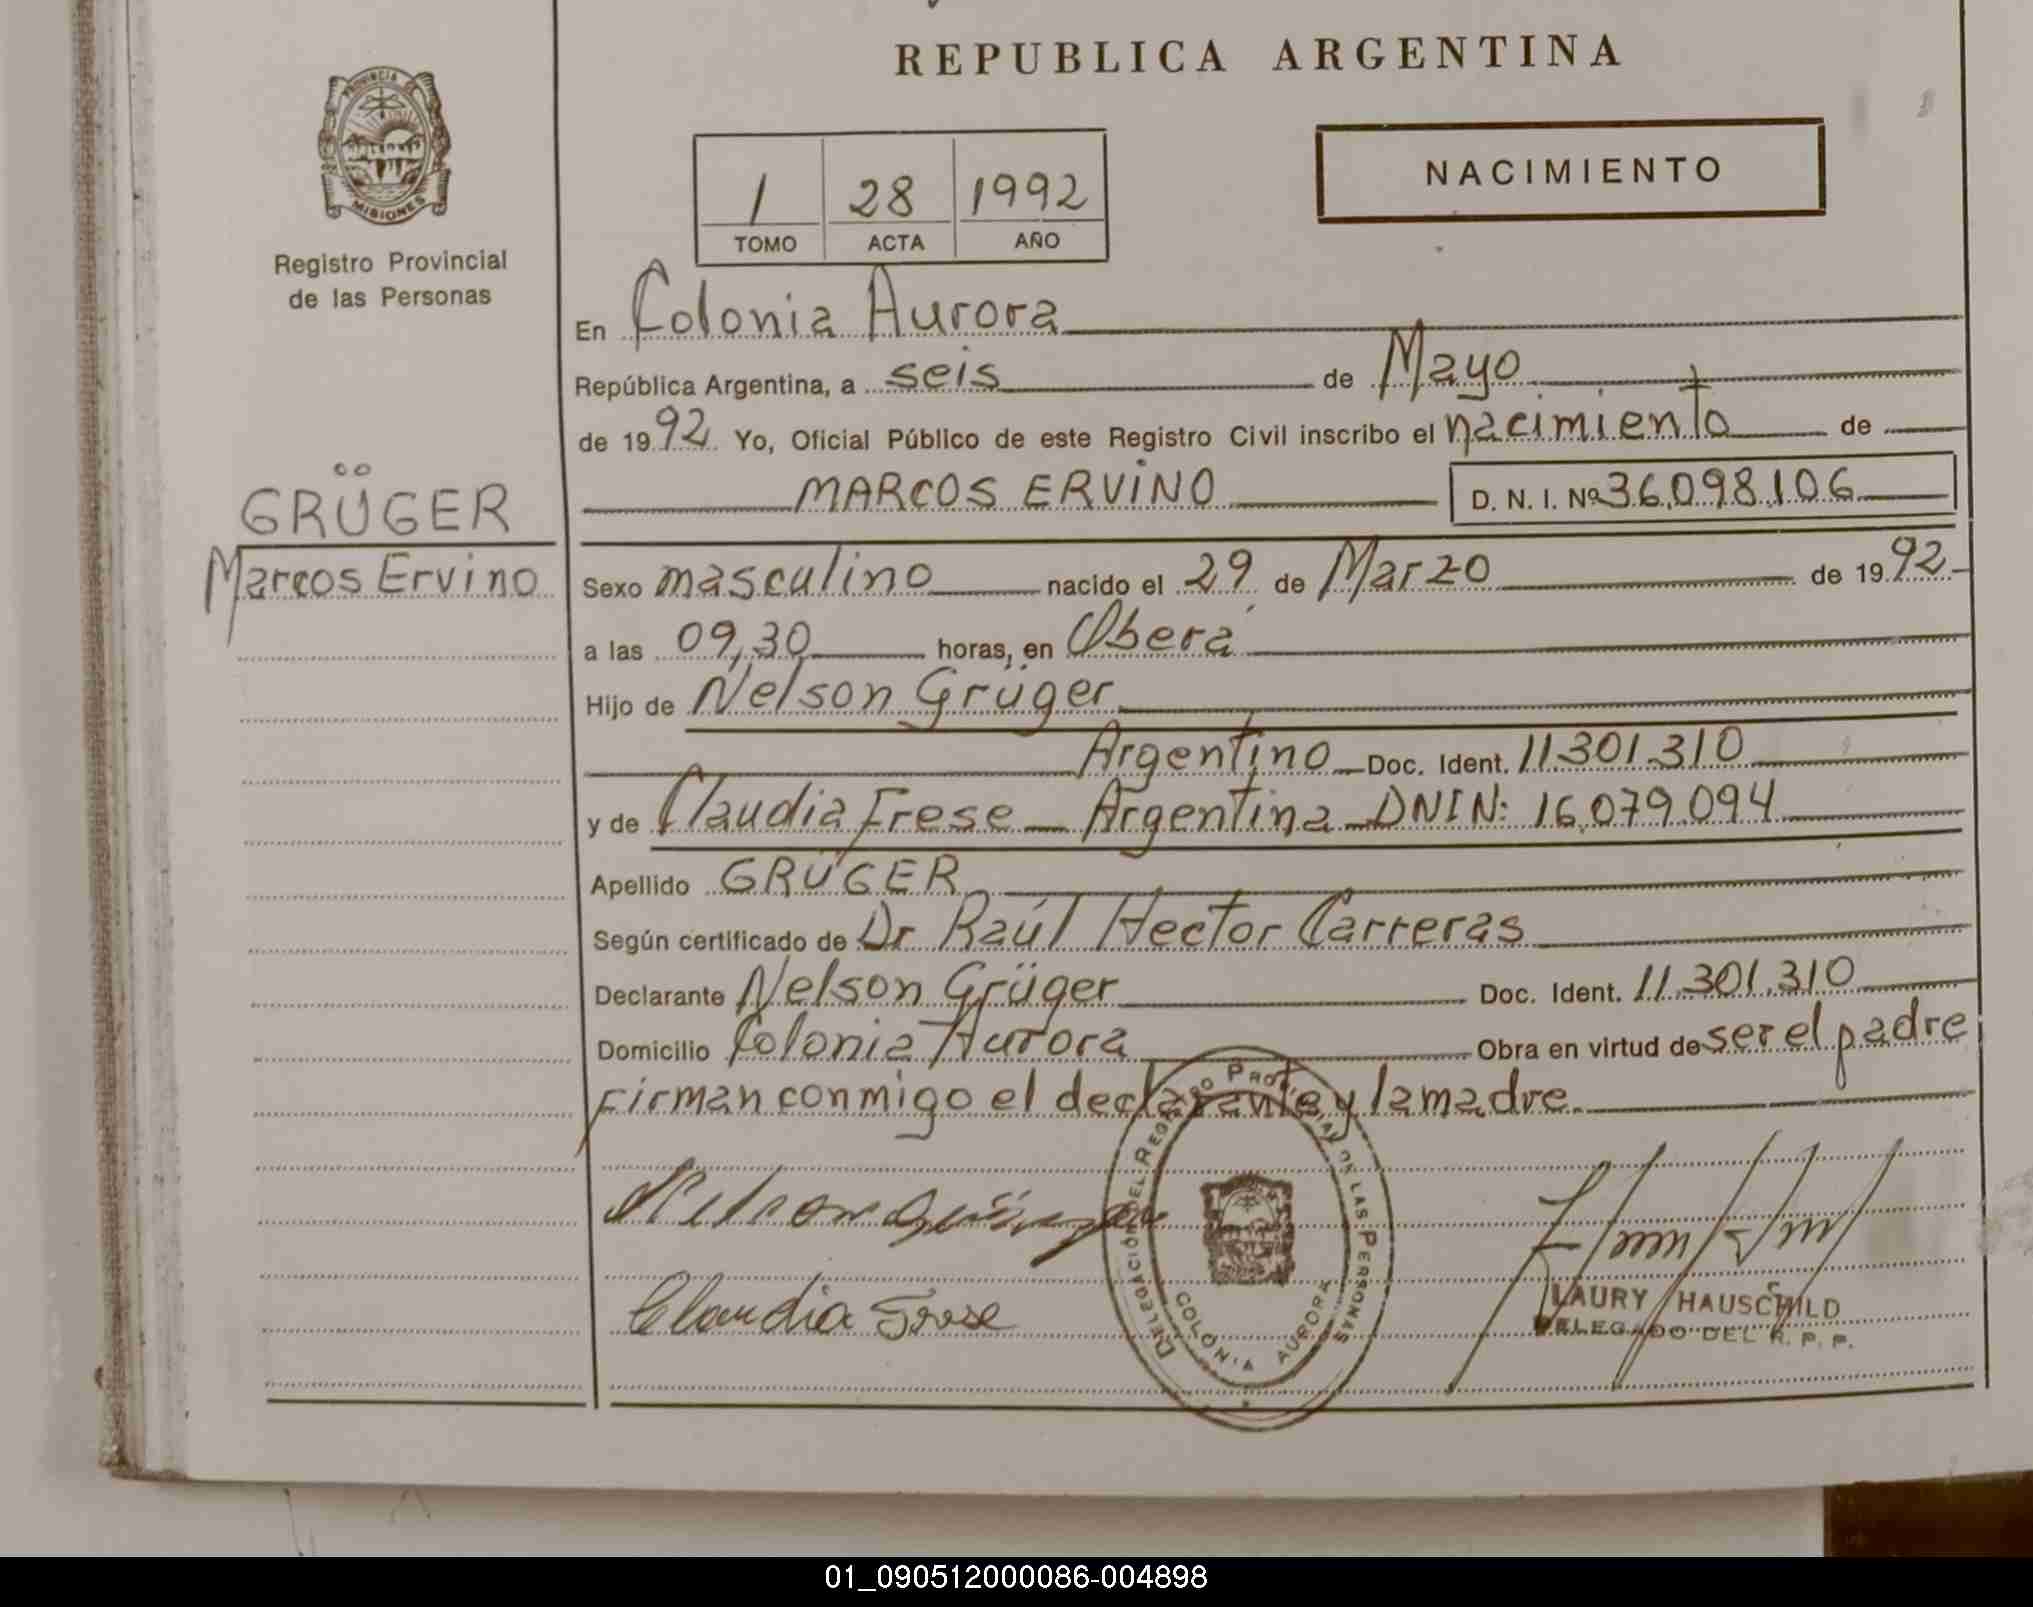 REPUBLICA ARGENTINA
PROVINCIA DE
MISIONES
Registro Provincial
de las Personas
NACIMIENTO
1 28 1992
TOMO ACTA AÑO
En Colonia Aurora
República Argentina, a seis de Mayo
de 1992 Yo, Oficial Público de este Registro Civil inscribo el nacimiento de
MARCOS ERVINO D. N. I. Nº 36.098.106
GRÜGER
Marcos Ervino
Sexo masculino nacido el 29 de Marzo de 1992
a las 09,30 horas, en Oberá
Hijo de Nelson Grüger
Argentino Doc. Ident. 11.301.310
y de Claudia Frese Argentina DNIN: 16.079.094
Apellido GRÜGER
Según certificado de Dr Raúl Hector Carreras
Declarante Nelson Grüger Doc. Ident. 11.301.310
Domicilio Colonia Aurora Obra en virtud de ser el padre
Firman conmigo el declarante y la madre.
Nelson Grüger
Claudia Frese
DELEGACIÓN DEL REGISTRO PROVINCIAL DE LAS PERSONAS
COLONIA AURORA
LAURY HAUSCHILD
DELEGADO DEL R. P. P.
01_090512000086-004898